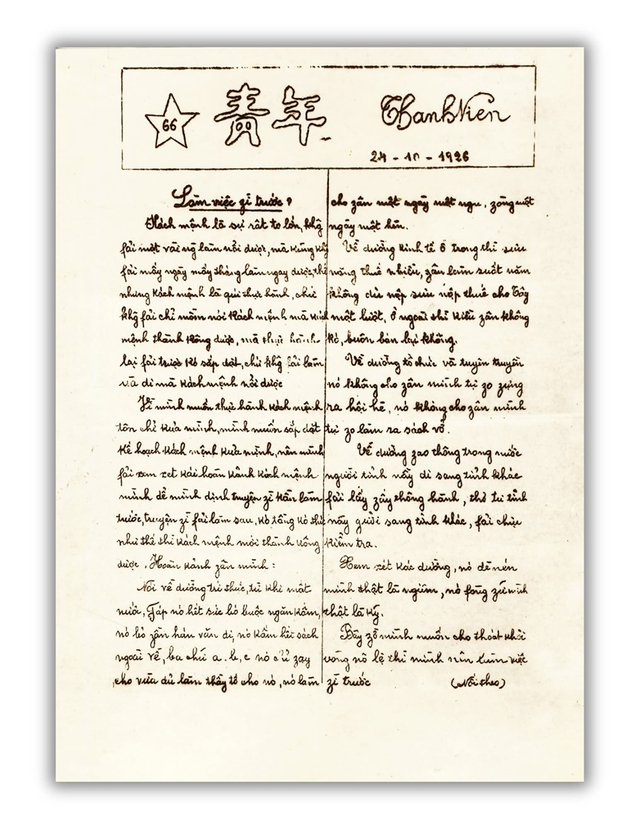 66
青年
Thanh Niên
24-10-1926
Làm việc zì trước?
Kách mệnh là sự rất to lớn, khg
fải một vài ng làm nổi được, mà kũng khg
fải mấy ngày mấy tháng làm ngay được, thì
nhưng kách mệnh là fải thực hành, chứ
khg fải chỉ mồm nói kách mệnh mà kách
mệnh thành kông được, mà thực hành
lại fải trước kó sắp đặt, chứ khg fải làm
và đi mà kách mệnh nổi được
Zì mình muốn thực hành kách mệnh
tôn chỉ kưa mình, mình muốn sắp đặt
kế hoạch kách mệnh kưa mình, nên mình
fải xem xét kái hoàn kảnh kách mệnh
mình để mình định truyện zì kần làm
trước, truyện zì fải làm sau, kó tầng kó thứ
như thế thì kách mệnh mới thành kông
được. Hoàn kảnh zân mình:
Nói về đường tri thức, từ khi mất
nước, Táp nó hết sức bó buộc ngăn kấm,
nó bỏ zần hán văn đi, nó kấm hết sách
ngoài về, ba chữ a.b.c nó cứ zay
cho vừa đủ làm thầy tớ cho nó, nó làm
cho zân một ngày một ngu, zống một
ngày một hèn.
Về đường kinh tế ở trong thì sưu
nặng thuế nhiều, zân làm suốt năm
không đủ nộp sưu nộp thuế cho Tây
một lượt, ở ngoài thì kiều zân không
kó, buôn bán lại không.
Về đường tổ chức và tuyên truyền
nó không cho zân mình tự zo zựng
ra hội hè, nó không cho zân mình
tự zo làm ra sách vở.
Về đường zao thông trong nước
người tỉnh nầy đi sang tỉnh khác
fải lấy zấy thông hành, thơ từ tỉnh
nầy gưởi sang tỉnh khác, fải chịu
kiểm tra.
Xem xét kác đường, nó đè nén
mình thật là ngiêm, nó fòng zữ mình
thật là kỹ.
Bây zờ mình muốn cho thoát khỏi
vòng nô lệ thì mình nên làm việc
zì trước (Nối theo)